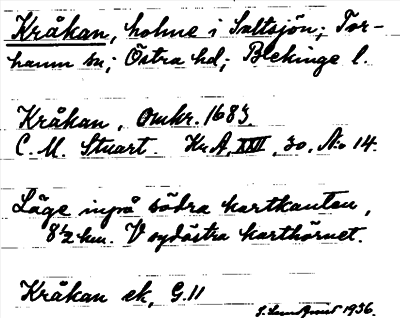 Kråkan, holme i Saltsjön; Tor-
hamn sn; Östra hd; Blekinge l.
Kråkan, Omkr. 1683.
C. M. Stuart. Kr.A, XXVI, 30, No 14.
Läge inpå södra kartkanten,
8½ km. V sydöstra karthörnet.
Kråkan ek, G.11
1936.